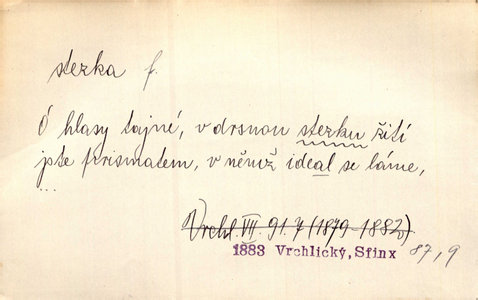 stezka f.
Ó hlasy tajné, v drsnou stezku žití
jste prismatem, v němž ideal se láme,
...
Vrchl. VII. 91.7 (1879-1882)
1883 Vrchlický, Sfinx 87,9